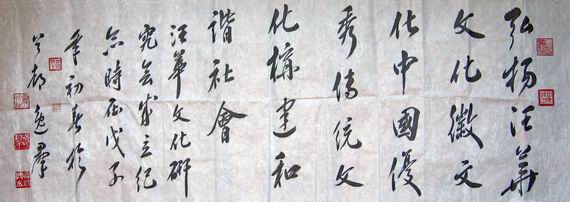 弘扬汪华
文化徽文
化中國優
秀传统文
化构建和
谐社會
汪華文化研
究会成立纪
念時在戊子
年初春於
逸群